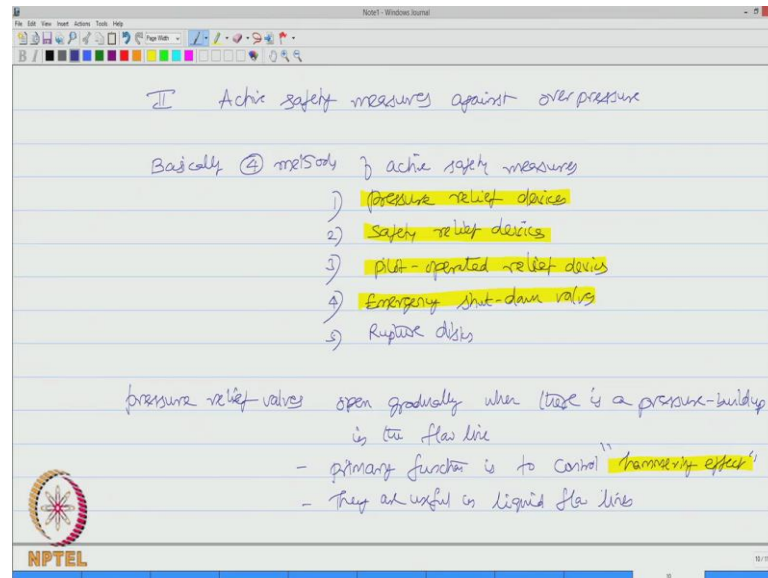 Note1 - Windows Journal
File Edit View Insert Actions Tools Help
Page Width
B I
II Active safety measures against overpressure
Basically 4 methods of active safety measures
1) pressure relief devices
2) Safety relief devices
3) pilot-operated relief devices
4) Emergency shut-down valves
5) Rupture disks
pressure relief valves open gradually when there is a pressure-buildup
in the flow line
- primary function is to control "hammering effect"
- They are useful in liquid flow lines
NPTEL